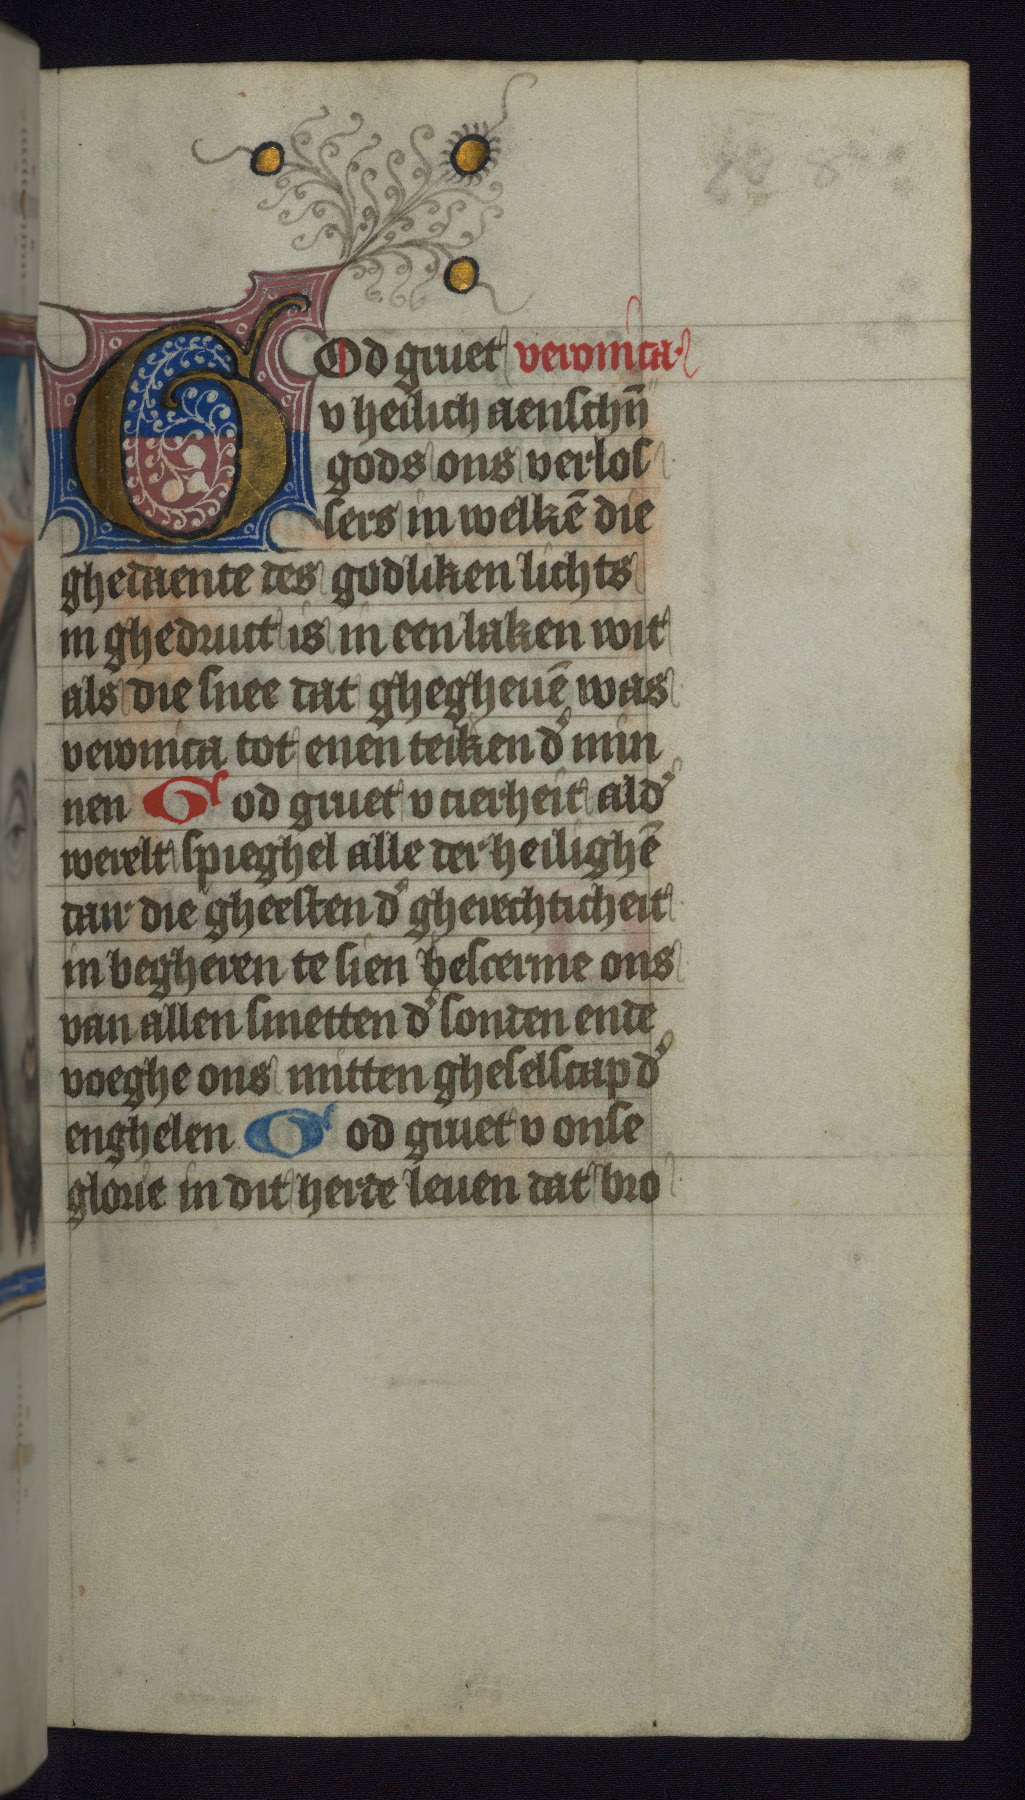 God gruet veronica
v heilich aenschijn̄
gods ons verlos
sers in welkē die
ghedaente des godliken lichts
in ghedruct is in een laken wit
als die snee dat ghegheuē was
veronica tot enen teiken d' min
nen God gruet v cierheit al d'
werelt spieghel alle der heilighē
dair die gheesten d' gherechticheit
in begheren te sien bescerme ons
van allen smetten d' sonden ende
voeghe ons mitten gheselscap d'
enghelen God gruet v onse
glorie in dit herde leuen dat bro